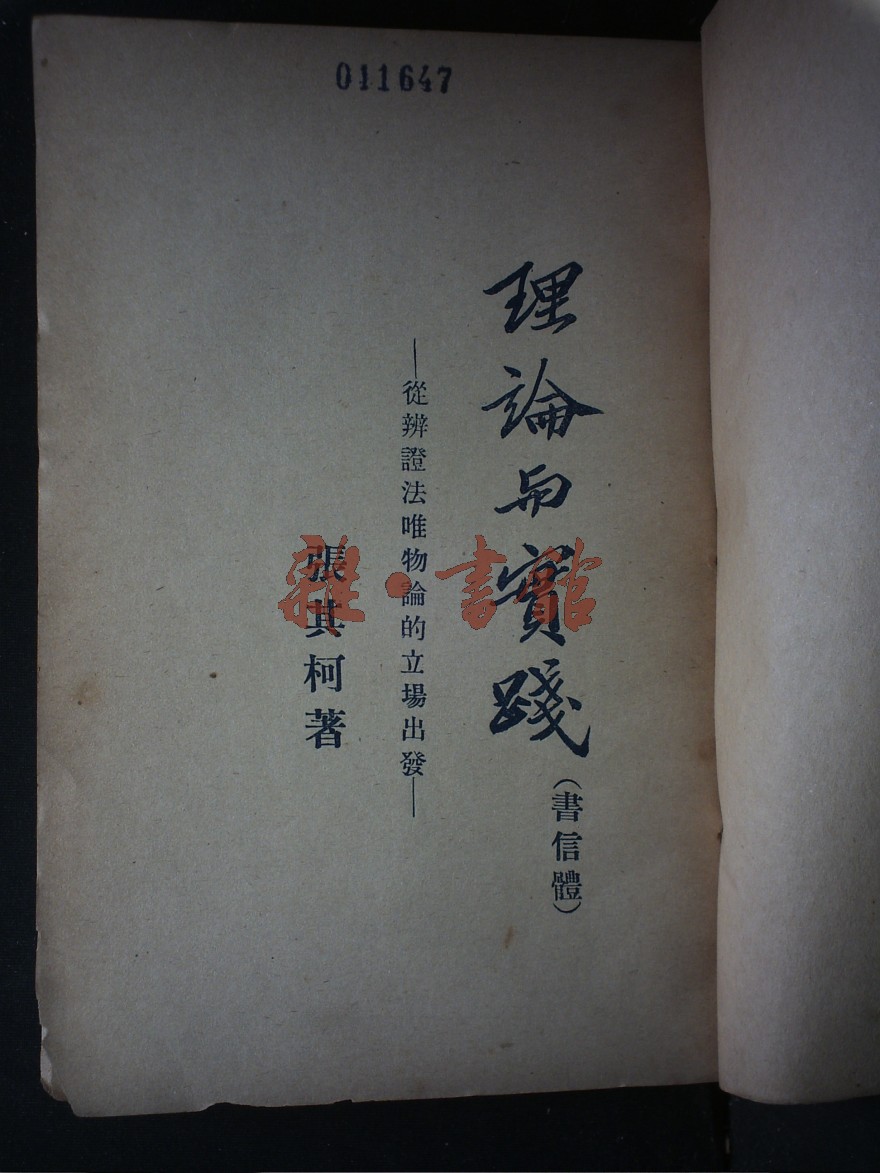 011647
理論与實踐
（書信體）
—從辨證法唯物論的立場出發—
張其柯著
雜·書館